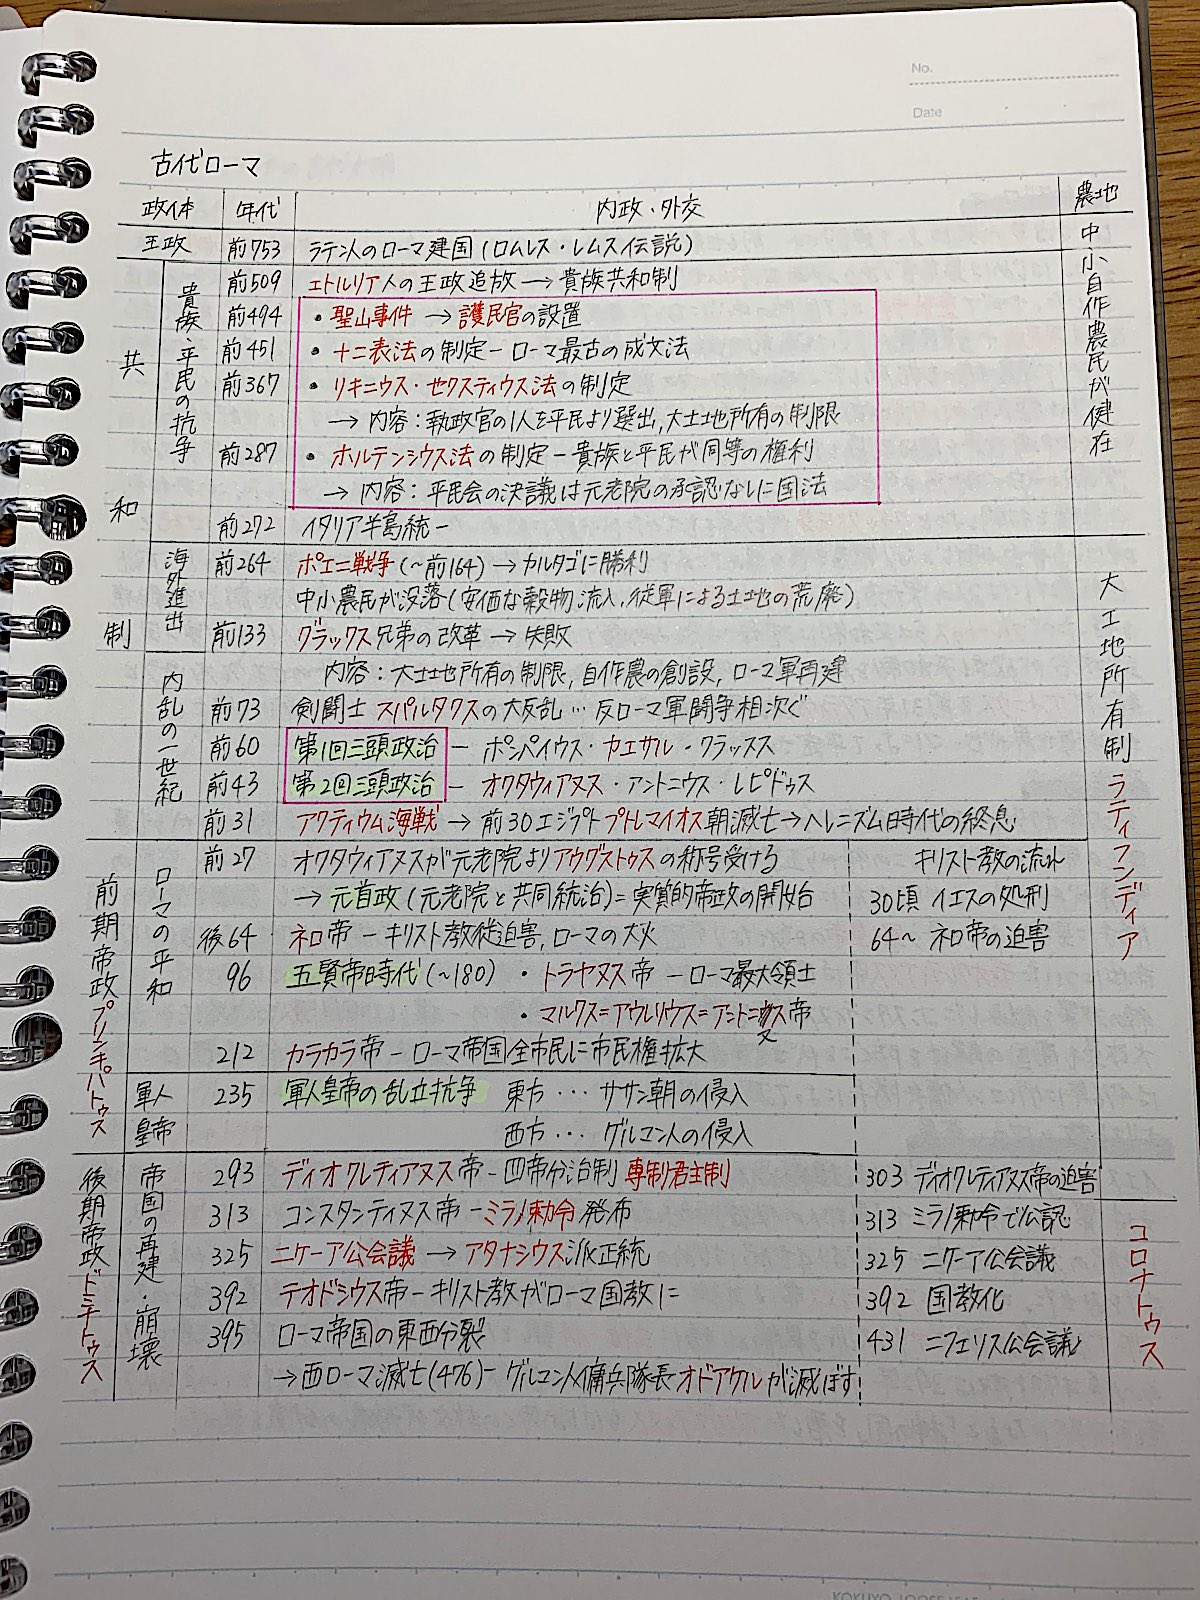 No.
Date
古代ローマ
政体 年代 内政・外交 農地
王政 前753 ラテン人のローマ建国(ロムルス・レムス伝説)
共和制
貴族・平民の抗争
中小自作農民が健在
前509 エトルリア人の王政追放→貴族共和制
前494 ・聖山事件→護民官の設置
前451 ・十二表法の制定ーローマ最古の成文法
前367 ・リキニウス・セクスティウス法の制定
→内容:執政官の1人を平民より選出,大土地所有の制限
前287 ・ホルテンシウス法の制定ー貴族と平民が同等の権利
→内容:平民会の決議は元老院の承認なしに国法
前272 イタリア半島統一
海外進出
大土地所有制ラティフンディア
前264 ポエニ戦争(~前164)→カルタゴに勝利
中小農民が没落(安価な穀物流入,従軍による土地の荒廃)
前133 グラックス兄弟の改革→失敗
内乱の一世紀
内容:大土地所有の制限,自作農の創設,ローマ軍再建
前73 剣闘士スパルタクスの大反乱…反ローマ軍闘争相次ぐ
前60 第1回三頭政治ーポンペイウス・カエサル・クラッスス
前43 第2回三頭政治ーオクタウィアヌス・アントニウス・レピドゥス
前31 アクティウム海戦→前30エジプトプトレマイオス朝滅亡→ヘレニズム時代の終息
前期帝政プリンキパトゥス
ローマの平和
前27 オクタウィアヌスが元老院よりアウグストゥスの称号受ける
→元首政(元老院と共同統治)=実質的帝政の開始
後64 ネロ帝ーキリスト教徒迫害,ローマの大火
96 五賢帝時代(~180) ・トラヤヌス帝ーローマ最大領土
・マルクス=アウレリウス=アントニヌス帝
212 カラカラ帝ーローマ帝国全市民に市民権拡大
軍人皇帝
235 軍人皇帝の乱立抗争 東方…ササン朝の侵入
西方…ゲルマン人の侵入
後期帝政ドミナトゥス
帝国の再建・崩壊
293 ディオクレティアヌス帝ー四帝分治制 専制君主制
313 コンスタンティヌス帝ーミラノ勅令発布
325 ニケーア公会議→アタナシウス派正統
392 テオドシウス帝ーキリスト教がローマ国教に
395 ローマ帝国の東西分裂
→西ローマ滅亡(476)ーゲルマン人傭兵隊長オドアケルが滅ぼす
キリスト教の流れ
30頃 イエスの処刑
64~ ネロ帝の迫害
303 ディオクレティアヌス帝の迫害
313 ミラノ勅令で公認
325 ニケーア公会議
392 国教化
431 エフェソス公会議
コロナトゥス